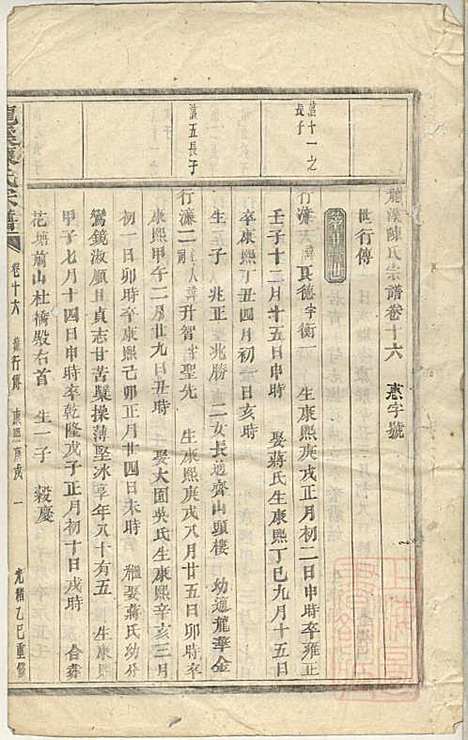 龍溪陳氏宗譜卷十六 惠字號
世行傳
蓮十一之長子
行濂一 諱真德字衡一 生康熙庚戌正月初二日申時卒雍正
壬子十二月十五日申時 娶蔣氏生康熙丁巳九月十五日
卒康熙丁丑四月初一日亥時
生二子 兆正 兆勝 二女長適齊山頭樓 幼適龍華金
蓮五長子
行濂二 諱升智 聖先 生康熙庚戌八月廿五日卯時卒
康熙甲午二月廿九日丑時 娶大園吳氏生康熙辛亥三月
初一日卯時卒康熙己卯正月廿四日未時 繼娶蔣氏幼分
鸞鏡淑順且貞志甘苦蘗操薄堅冰享年八十有五 生康熙
甲子七月十四日申時卒乾隆戊子正月初十日戌時 合葬
花塘前山杜橋殿右首 生一子 毅慶
龍溪陳氏宗譜 卷十六 行傳 康熙庚戌 一 光緒乙巳重修